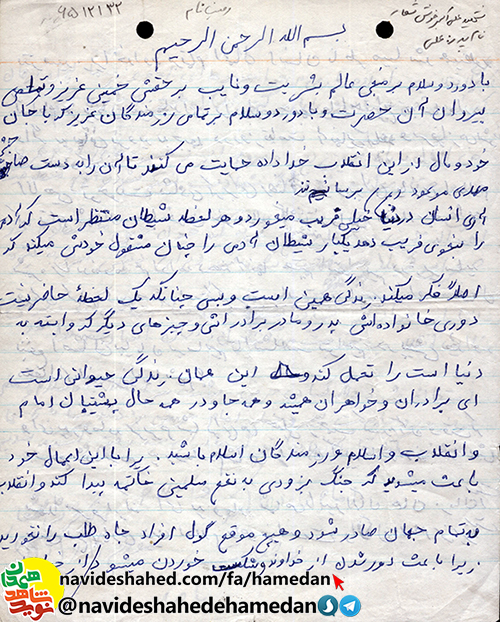 ۹۵۱۲۱۳۲
وصیت نام
شهید علی اکبر
نام پدر: علی
بسم الله الرحمن الرحیم
با درود و سلام بر منجی عالم بشریت و نایب بر حقش خمینی عزیز و تمامی
پیروان آن حضرت و با درود و سلام بر تمامی رزمندگان عزیز که با جان
خود و مال از این انقلاب خداداده حمایت می کنند تا آن را به دست صاحبش
مهدی موعود (عج) برسانند
آدمی انسان در دنیا خیلی فریب میخورد و هر لحظه شیطان منتظر است که آدمی
را بنحوی فریب دهد یکبار شیطان آدمی را چنان مشغول خودش میکند که
اصلا فکر میکند زندگی همین است و بس چنانکه یک لحظهٔ حاضر نیست
دوری خانواده‌اش پدر و مادر برادرانش و چیزهای دیگر که وابسته به
دنیا است را تحمل کند و این همان زندگی حیوانی است
ای برادران و خواهران همیشه و همه جا و در همه حال پشتیبان امام
و انقلاب و اسلام و رزمندگان اسلام باشید. زیرا با این اعمال خود
باعث میشوید که جنگ بزودی به نفع مسلمین خاتمه پیدا کند و انقلاب
به تمام جهان صادر شود و هیچ موقع گول افراد جاه طلب را نخورید
زیرا باعث دور شدن از خداوند و شکست خوردن میشود
نوید شاهد همدان
navideshahed.com/fa/hamedan
@navideshahedehamedan